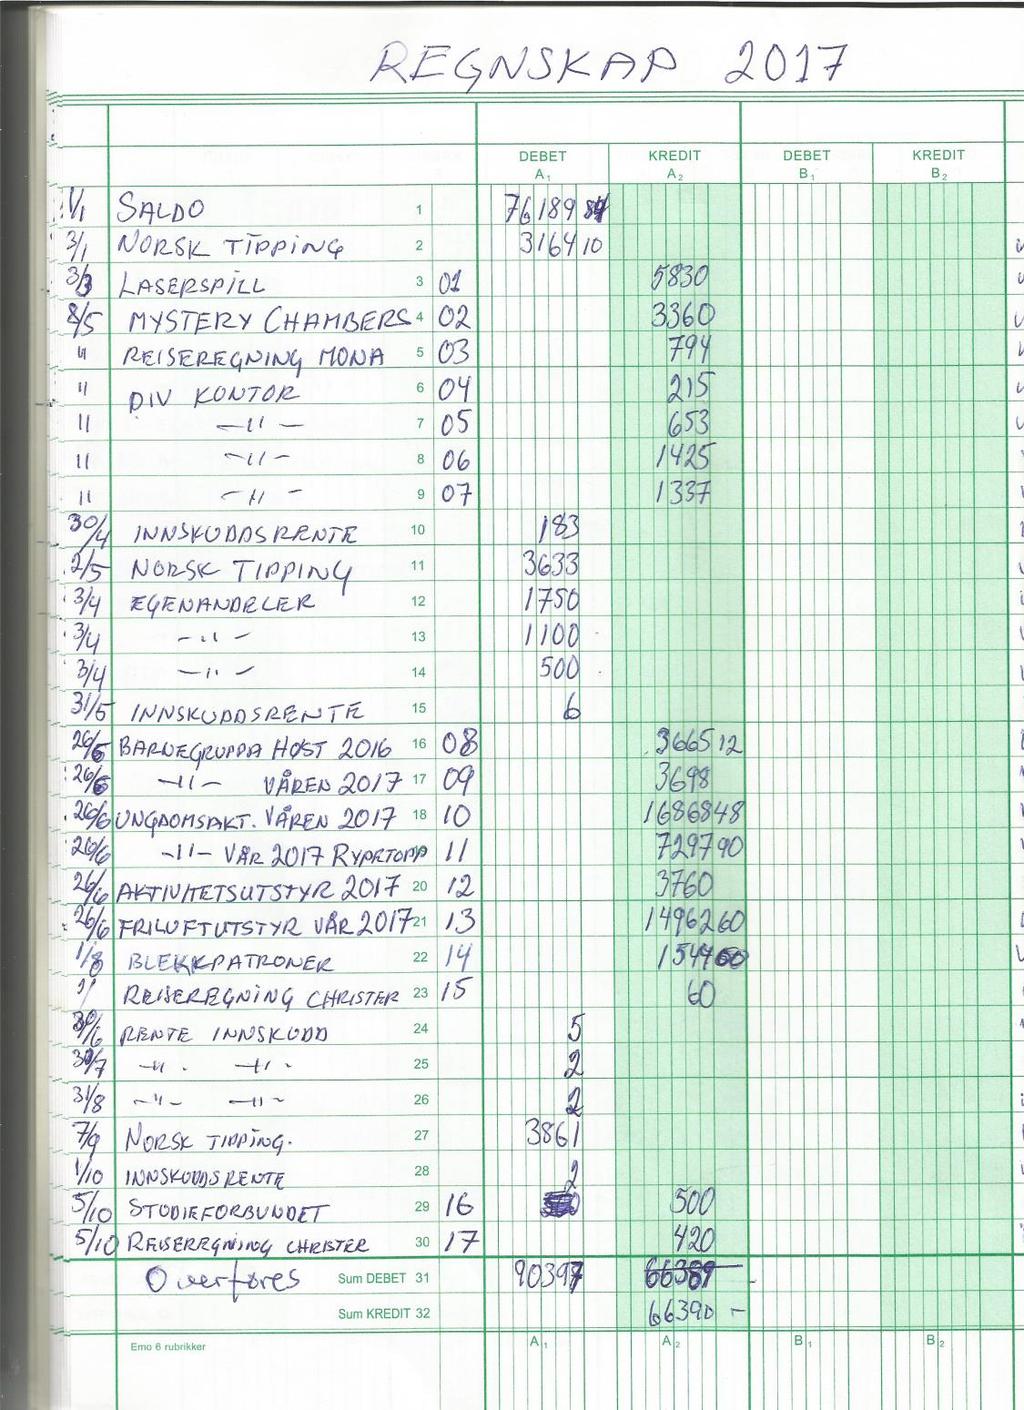 REGNSKAP 2017
DEBET KREDIT DEBET KREDIT
A1 A2 B1 B2
1/1 SALDO 1 76189 84
3/1 NORSK TIPPING 2 3164 10
3/3 LASERSPILL 3 01 5830
8/5 MYSTERY CHAMBERS 4 02 3360
" REISEREGNING MONA 5 03 794
" DIV KONTOR 6 04 215
" —"— 7 05 653
" —"— 8 06 1425
" —"— 9 07 1337
30/4 INNSKUDDSRENTE 10 183
2/5 NORSK TIPPING 11 3633
3/4 EGENANDELER 12 1750
3/4 —"— 13 1100
3/4 —"— 14 500
31/5 INNSKUDDSRENTE 15 6
26/6 BARNEGRUPPA HØST 2016 16 08 3665 12
26/6 —"— VÅREN 2017 17 09 3698
26/6 UNGDOMSAKT. VÅREN 2017 18 10 16868 48
26/6 —"— VÅR 2017 11 7297 90
26/6 AKTIVITETSUTSTYR 2017 20 12 3760
26/6 FRILUFTUTSTYR VÅR 2017 21 13 14962 60
1/8 BLEKKPATRONER 22 14 1544
" REISEREGNING CHRISTER 23 15 60
30/6 RENTE INNSKUDD 24 5
30/7 —"— —"— 25 2
31/8 —"— —"— 26 2
7/9 NORSK TIPPING. 27 3861
1/10 INNSKUDDSRENTE 28 2
5/10 STUDIEFORBUNDET 29 16 500
5/10 REISEREGNING CHRISTER 30 17 420
Overføres Sum DEBET 31 90397 66389
Sum KREDIT 32 66390 —
Emo 6 rubrikker A1 A2 B1 B2